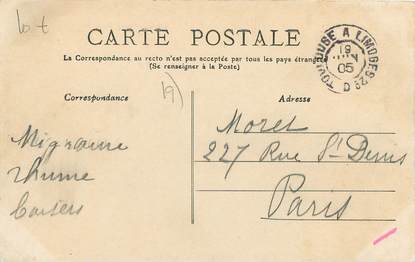 Lot
CARTE POSTALE
La Correspondance au recto n'est pas acceptée par tous les pays étrangers
(Se renseigner à la Poste)
TOULOUSE A LIMOGES
19
JUIN
05
D
19)
Correspondance
Adresse
Migraine
rhume
baisers
Moret
227 Rue St Denis
Paris